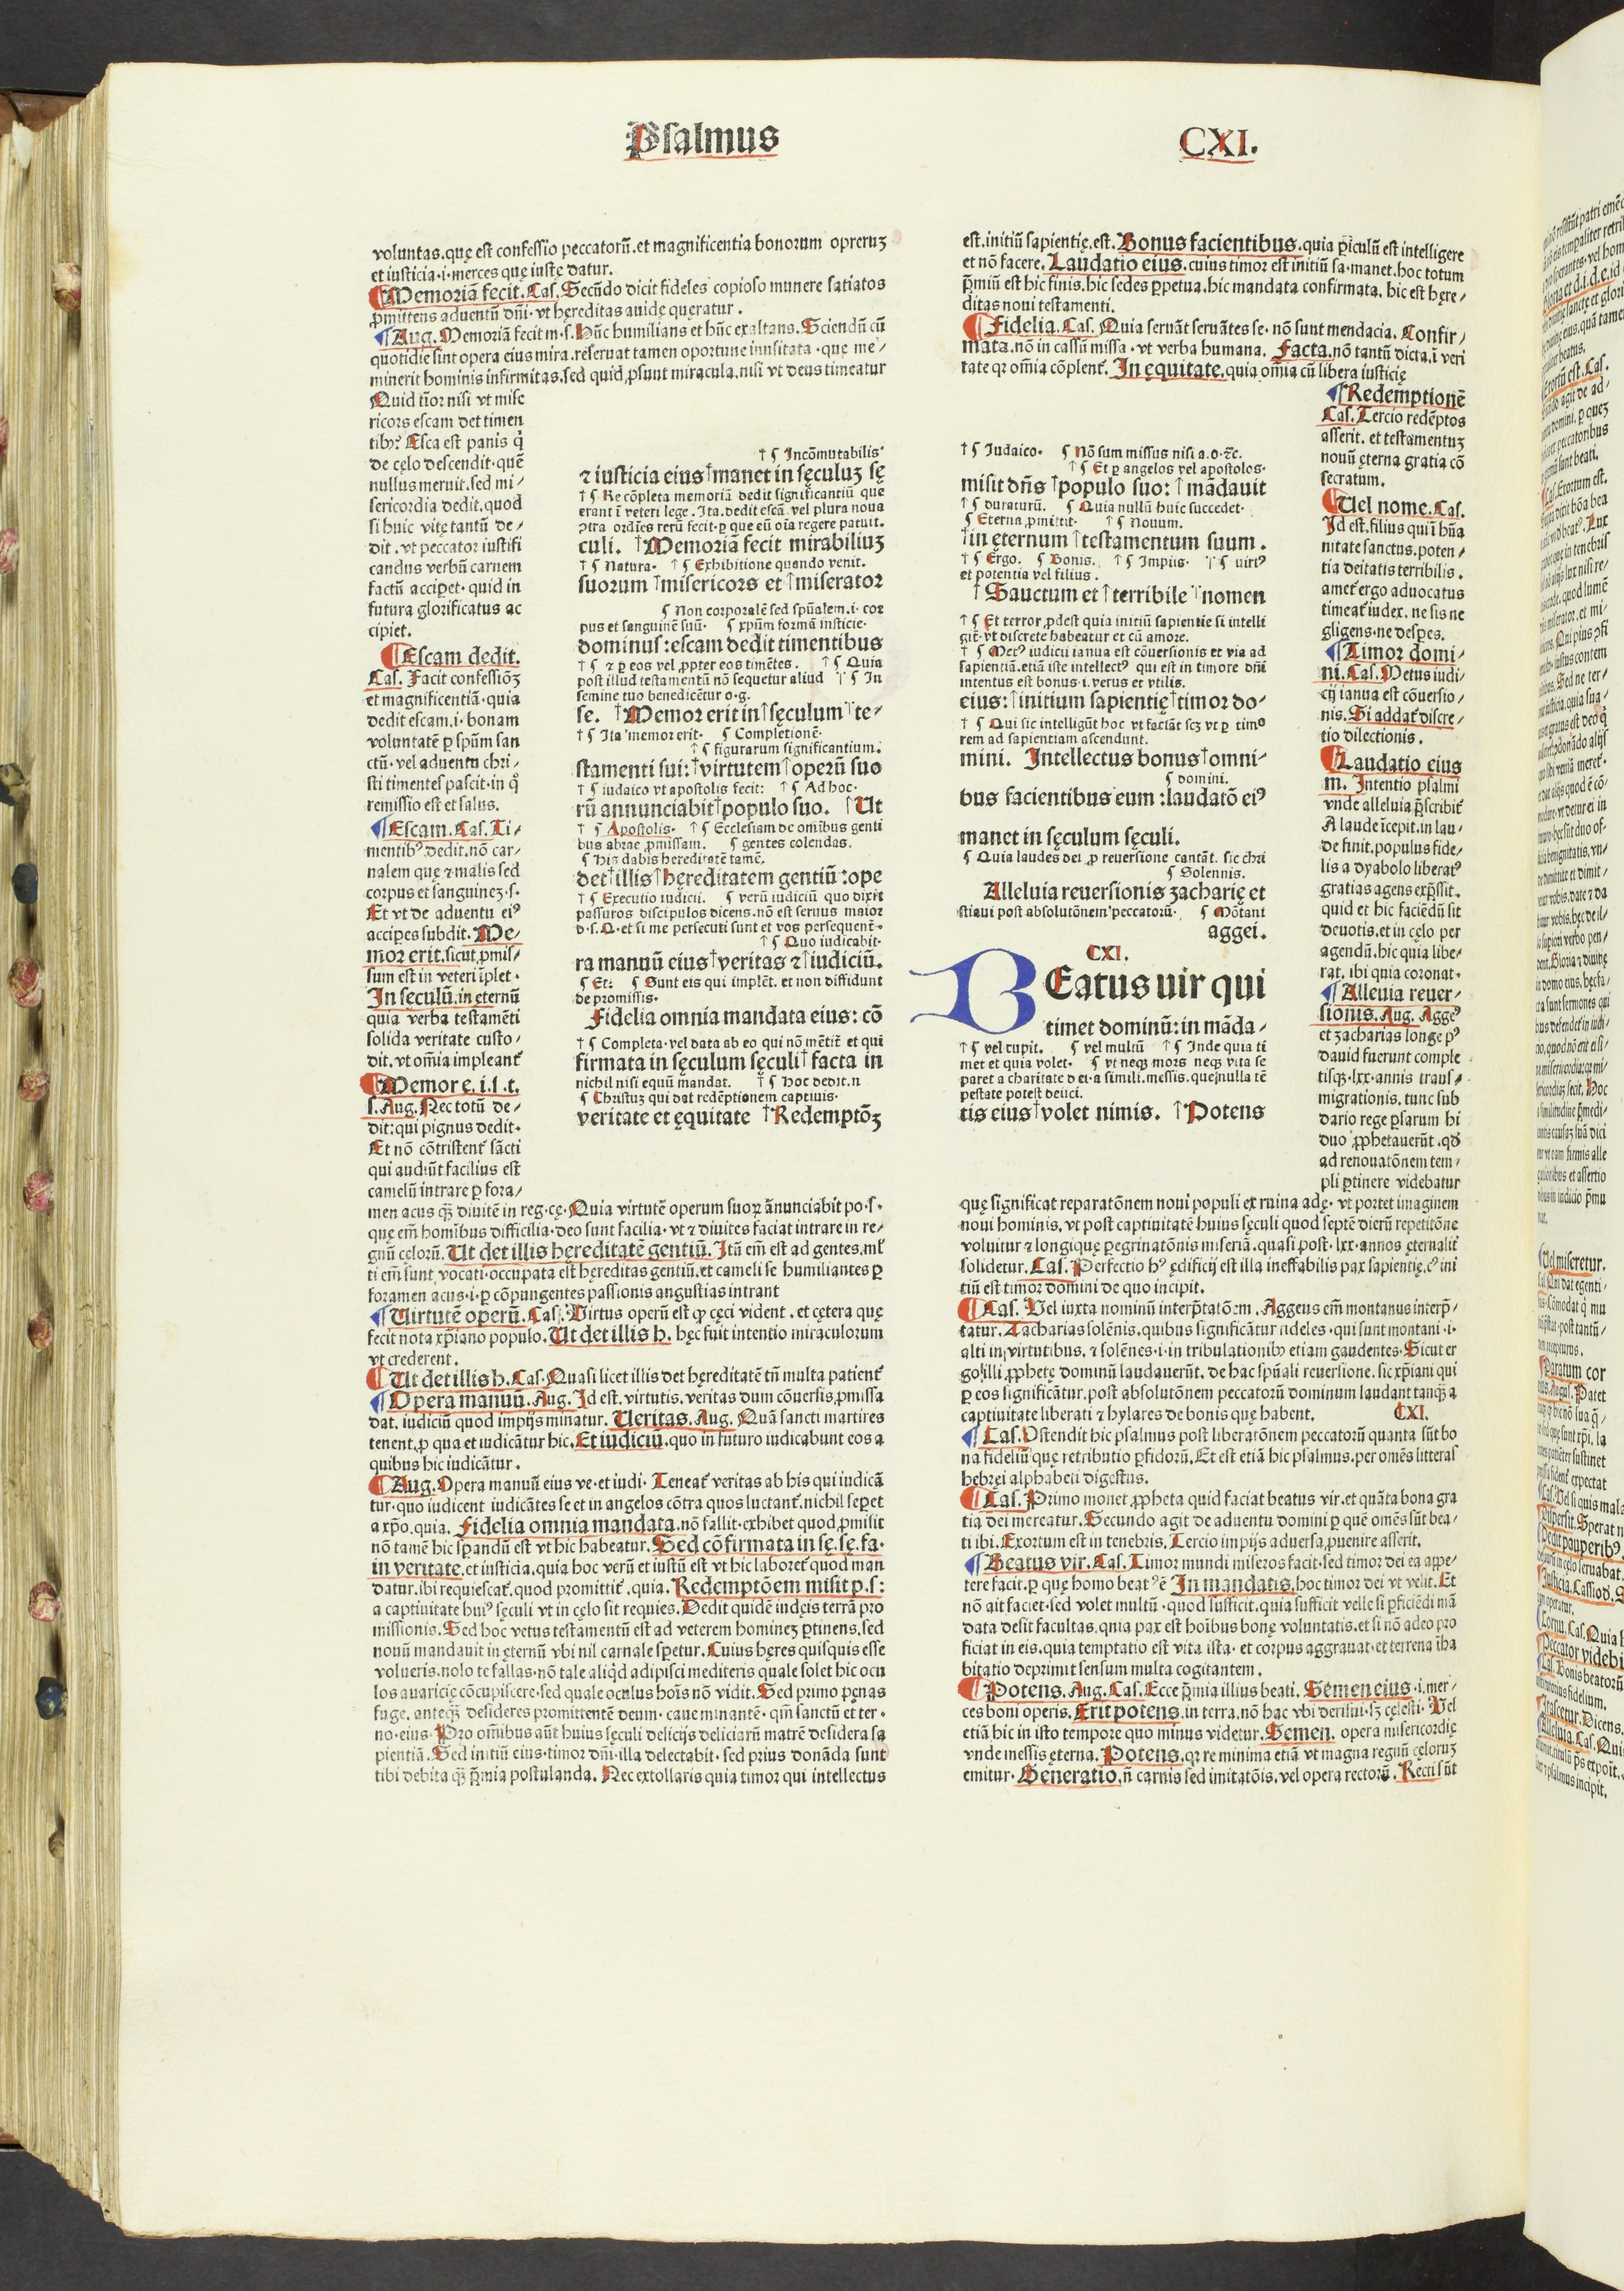 Psalmus
CXI.
voluntas.quę est confessio peccatorū.et magnificentia bonorum opreruʒ
et iusticia.i.merces quę iuste datur.
Memoriā fecit. Cas. Secūdo dicit fideles copioso munere satiatos
ꝓmittens aduentū dn̄i.vt hęreditas auide quęratur.
Aug. Memoriā fecit m.s. Hūc humilians et hūc exaltans. Sciendū cū
quotidie sint opera eius mira.reseruat tamen oportune inusitata.que me⸗
minerit hominis infirmitas.sed quid ꝓsunt miracula.nisi vt deus timeatur
Quid tīor nisi vt mise
ricors escam det timen
tibꝰ? Esca est panis q̇
de cęlo descendit.quē
nullus meruit.sed mi⸗
sericordia dedit.quod
si huic vitę tantū de⸗
dit.vt peccator iustifi
candus verbū carnem
factū accipet.quid in
futura glorificatus ac
cipiet.
Escam dedit.
Cas. Facit confessiōʒ
et magnificentiā.quia
dedit escam.i.bonam
voluntatē ꝑ spūm san
ctū.vel aduentu chri⸗
sti timentes pascit.in q̊
remissio est et salus.
Escam. Cas. Ti⸗
mentibꝰ.dedit.nō car⸗
nalem que ⁊ malis sed
corpus et sanguineʒ.s.
Et vt de aduentu eiꝰ
accipes subdit. Me⸗
mor erit.sicut ꝓmis⸗
sum est in veteri īplet.
In sęculū.in ęternū
quia verba testamēti
solida veritate custo⸗
dit.vt om̄ia impleant᷑
Memor e.i.s.t.
s. Aug. Nec totū de⸗
dit:qui pignus dedit.
Et nō cōtristent᷑ sācti
qui aud.ūt facilius est
camelū intrare ꝑ fora⸗
men acus q̄ʒ diuitē in reg.cę. Quia virtutē operum suoꝝ ānunciabit po.s.
quę em̄ homībus difficilia.deo sunt facilia.vt ⁊ diuites faciat intrare in re⸗
gnū cęlorū. Ut det illis hęreditatē gentiū. Itū em̄ est ad gentes.ml᷑
ti em̄ sunt vocati.occupata est hęreditas gentiū.et cameli se humiliantes ꝑ
foramen acus.i.ꝑ cōpungentes passionis angustias intrant
Virtutē operū. Cas. Virtus operū est ꝙ cęci vident.et cętera quę
fecit nota xp̄iano populo. Ut det illis h. hęc fuit intentio miraculorum
vt crederent.
Ut det illis h. Cas. Quasi licet illis det hęreditatē tn̄ multa patient᷑
Opera manuū. Aug. Id est.virtutis.veritas dum cōuersis ꝓmissa
dat.iudiciū quod impijs minatur. Ueritas. Aug. Quā sancti martires
tenent.ꝓ qua et iudicātur hic. Et iudiciū.quo in futuro iudicabunt eos a
quibus hic iudicātur.
Aug. Opera manuū eius ve.et iudi. Teneat᷑ veritas ab his qui iudicā
tur.quo iudicent iudicātes se et in angelos cōtra quos luctant᷑.nichil sepet
a xp̄o.quia. Fidelia omnia mandata.nō fallit.exhibet quod ꝓmisit
nō tamē hic spandū est vt hic habeatur. Sed cōfirmata in sę.sę.fa.
in veritate.et iusticia.quia hoc verū et iustū est vt hic laboret᷑ quod man
datur.ibi requiescat᷑.quod promittit᷑.quia. Redemptōem misit p.s:
a captiuitate hniꝰ sęculi vt in cęlo sit requies. Dedit quidē iudęis terrā pro
missionis. Sed hoc vetus testamentū est ad veterem homineʒ ꝑtinens.sed
nouū mandauit in ęternū vbi nil carnale spetur. Cuius hęres quisquis esse
volueris.nolo te fallas.nō tale aliqd adipisci mediteris quale solet hic ocu
los auaricię cōcupiscere.sed quale oculus hoīs nō vidit. Sed primo pęnas
fuge.anteq̄ʒ desideres promittentē deum.caue minantē.qm̄ sanctū et ter.
no.eius. Pro om̄ibus aūt huius sęculi delicijs deliciarū matrē desidera sa
pientiā. Sed initiū eius.timor dn̄i.illa delectabit.sed prius donāda sunt
tibi debita q̄ʒ p̄mia postulanda. Nec extollaris quia timor qui intellectus
† ¶ Incōmutabilis
⁊ iusticia eius†manet in sęculuʒ sę
† ¶ Re cōpleta memoriā dedit significantiū que
erant ī veteri lege. Ita.dedit escā.vel plura noua
ↄtra ordīes rerū fecit.ꝑ que eū oīa regere patuit.
culi. †Memoriā fecit mirabiliuʒ
† ¶ Natura. † ¶ Exhibitione quando venit.
suorum †misericors et †miserator
¶ Non corporalē sed spūalem.i.cor
pus et sanguinē suū. ¶ xpūm formā iusticie.
dominus:escam dedit timentibus
† ¶ ⁊ ꝑ eos vel ꝓpter eos timētes. † ¶ Quia
post illud testamentū nō sequetur aliud † ¶ In
semine tuo benedicētur o.g.
se. †Memor erit in†sęculum†te⸗
† ¶ Ita memor erit. ¶ Completionē.
† ¶ figurarum significantium.
stamenti sui:†virtutem†operū suo
† ¶ iudaico vt apostolis fecit: † ¶ Ad hoc.
rū annunciabit†populo suo. †Ut
† ¶ Apostolis. † ¶ Ecclesiam de omībus genti
bus abrae ꝓmissam. ¶ gentes colendas.
¶ His dabis hereditatē tamē.
det†illis†hęreditatem gentiū:ope
† ¶ Executio iudicii. ¶ verū iudiciū quo dixit
passuros discipulos dicens.nō est seruus maior
d.s.Q.et si me persecuti sunt et vos persequent.
† ¶ Quo iudicabit.
ra manuū eius†veritas ⁊†iudiciū.
¶ Et: ¶ Sunt eis qui implēt. et non diffidunt
de promissis.
Fidelia omnia mandata eius: cō
† ¶ Completa.vel data ab eo qui nō mētit᷑ et qui
firmata in sęculum sęculi†facta in
nichil nisi equū mandat. † ¶ hoc dedit.n
¶ Christuʒ qui dat redēptionem captiuis.
veritate et ęquitate †Redemptōʒ
est.initiū sapientię.est. Bonus facientibus.quia ꝑiculū est intelligere
et nō facere. Laudatio eius.cuius timor est initiū sa.manet.hoc totum
p̄miū est hic finis.hic sedes ꝑpetua.hic mandata confirmata. hic est hęre⸗
ditas noui testamenti.
Fidelia. Cas. Quia seruāt seruātes se.nō sunt mendacia. Confir⸗
mata.nō in cassū missa.vt verba humana. Facta.nō tantū dicta.ī veri
tate qꝛ om̄ia cōplent᷑. In ęquitate.quia om̄ia cū libera iusticię
† ¶ Iudaico. ¶ Nō sum missus nisi a.o.⁊c.
† ¶ Et ꝑ angelos vel apostolos.
misit dn̄s †populo suo: †mādauit
† ¶ duraturū. ¶ Quia nullū huic succedet.
¶ Eterna ꝓmittit. † ¶ Nouum.
†in ęternum †testamentum suum.
† ¶ Ergo. ¶ Bonis. † ¶ Impiis. † ¶ uirtꝰ
et potentia vel filius.
†Sanctum et†terribile†nomen
† ¶ Et terror ꝓdest quia initiū sapientie si intelli
git᷑ vt discrete habeatur et cū amore.
† ¶ Metꝰ iudicii ianua est cōuersionis et via ad
sapientiā.etiā iste intellectꝰ qui est in timore dn̄i
intentus est bonus.i.verus et vtilis.
eius:†initium sapientię†timor do⸗
† ¶ Qui sic intelligūt hoc vt faciāt scʒ vt ꝑ timo
rem ad sapientiam ascendunt.
mini. Intellectus bonus†omni⸗
¶ domini.
bus facientibus eum:laudatō eiꝰ
manet in sęculum sęculi.
¶ Quia laudes dei ꝓ reuersione cantāt. sic chri
¶ Solennis.
Alleluia reuersionis zacharię et
stiani post absolutōnem peccatorū. ¶ Mōtani
aggei.
CXI.
BEatus uir qui
timet dominū:in māda⸗
† ¶ vel cupit. ¶ vel multū † ¶ Inde quia ti
met et quia volet. ¶ vt neqʒ mors neqʒ vita se
paret a charitate dei.a simili.messis.que nulla tē
pestate potest deiici.
tis eius†volet nimis. †Potens
Redemptionē
Cas. Tercio redēptos
asserit.et testamentuʒ
nouū ęterna gratia cō
secratum.
Uel nome. Cas.
Id est.filius qui ī hūa
nitate sanctus.poten⸗
tia deitatis terribilis.
amet᷑ ergo aduocatus
timeat᷑ iudex.ne sis ne
gligens.ne despes.
Timor domi⸗
ni. Cas. Metus iudi⸗
cij ianua est cōuersio⸗
nis. Si addat᷑ discre⸗
tio dilectionis.
Laudatio eius
m. Intentio psalmi
vnde alleluia p̄scribit᷑
A laude īcepit.in lau⸗
de finit.populus fide⸗
lis a dyabolo liberatꝰ
gratias agens exp̄ssit.
quid et hic faciēdū sit
deuotis.et in cęlo per
agendū.hic quia libe⸗
rat.ibi quia coronat.
Alleuia reuer⸗
sionis. Aug. Aggeꝰ
et zacharias longe pꝰ
dauid fuerunt comple
tisqʒ.lxx.annis trans⸗
migrationis.tunc sub
dario rege psarum hi
duo ꝓphetauerūt.qđ
ad renouatōnem tem⸗
pli ꝑtinere videbatur
quę significat reparatōnem noui populi ex ruina adę. vt portet imaginem
noui hominis.vt post captiuitatē huius sęculi quod septē dierū repetitōne
voluitur ⁊ longiquę ꝑegrinatōnis miseriā.quasi post.lxx.annos ęternalit᷑
solidetur. Cas. Perfectio hꝰ ędificij est illa ineffabilis pax sapientię.cꝰ ini
tiū est timor domini de quo incipit.
Cas. Vel iuxta nominū interp̄tatōem. Aggeus em̄ montanus interp̄⸗
tatur. Zacharias solēnis.quibus significātur fideles.qui sunt montani.i.
alti in virtutibus.⁊ solēnes.i.in tribulationibꝰ etiam gaudentes. Sicut er
go illi ꝓphetę dominū laudauerūt.de hac spūali reuersione.sic xp̄iani qui
ꝑ eos significātur.post absolutōnem peccatorū dominum laudant tanq̄ʒ a
captiuitate liberati ⁊ hylares de bonis quę habent. CXI.
Cas. Ostendit hic psalmus post liberatōnem peccatorū quanta sūt bo
na fideliū quę retributio ꝑfidorū. Et est etiā hic psalmus.per omēs litteras
hebręi alphabeti digestus.
Cas. Primo monet ꝓpheta quid faciat beatus vir.et quāta bona gra
tia dei mereatur. Secundo agit de aduentu domini ꝑ quē omēs sūt bea⸗
ti ibi. Exortum est in tenebris. Tercio impijs aduersa ꝓuenire asserit.
Beatus vir. Cas. Timor mundi miseros facit.sed timor dei ea appe⸗
tere facit.ꝑ quę homo beatꝰ ē In mandatis.hoc timor dei vt velit. Et
nō ait faciet.sed volet multū.quod sufficit.quia sufficit velle si ꝑficiēdi mā
data desit facultas.quia pax est hoībus bonę voluntatis.et si nō adeo pro
ficiat in eis.quia temptatio est vita ista.et corpus aggrauat.et terrena īha
bitatio deprimit sensum multa cogitantem.
Potens. Aug. Cas. Ecce p̄mia illius beati. Semen eius.i.mer⸗
ces boni operis. Erit potens.in terra.nō hac vbi derisui.sʒ cęlesti. Vel
etiā hic in isto tempore quo minus videtur. Semen. opera misericordię
vnde messis ęterna. Potens.qꝛ re minima etiā vt magna regnū cęloruʒ
emitur. Generatio.n̄ carnis sed imitatōis.vel opera rectorū. Recti sūt